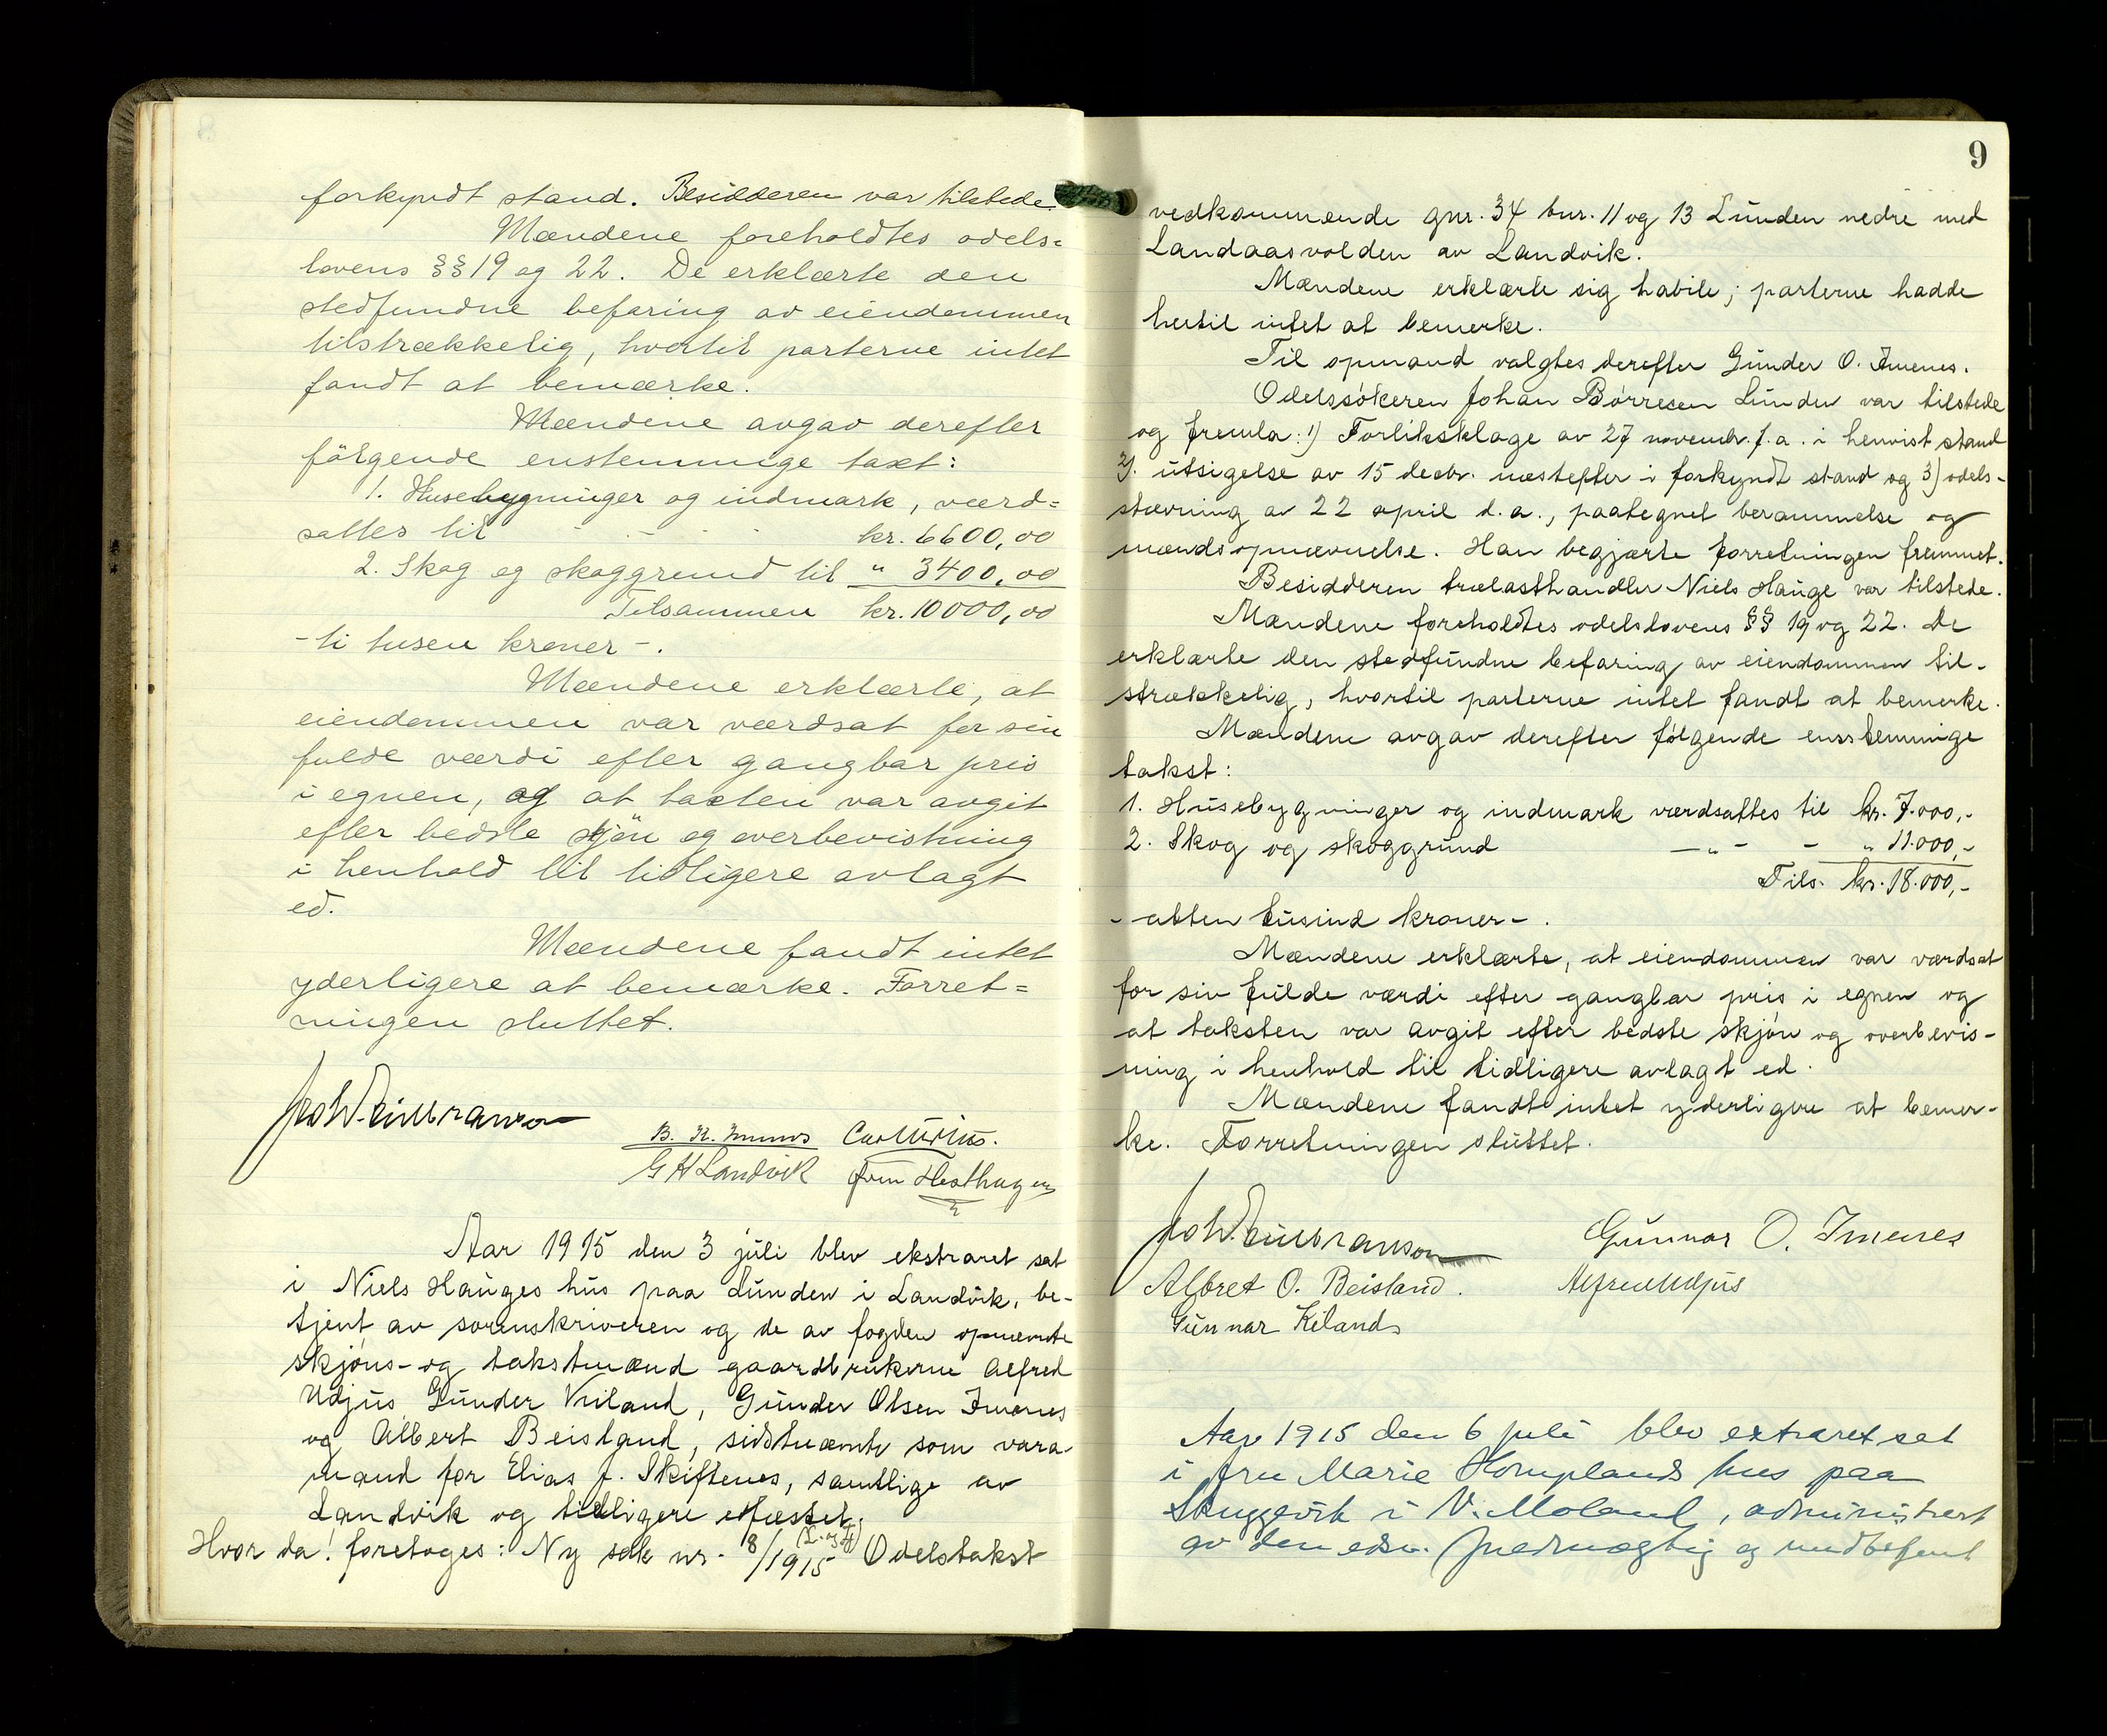 forkyndt stand. Besidderen var tilstede.
Mændene foreholdtes odels=
lovens §§ 19 og 22. De erklærte den
stedfundne befaring av eiendommen
tilstrækkelig, hvortil parterne intet
fandt at bemærke.
Mændene avgav derefter
følgende enstemmige taxt:
1. Husebygninger og indmark, værd=
sattes til - - - kr. 6600,00
2. Skog og skoggrund til " 3400,00
Tilsammen kr. 10000,00
- ti tusen kroner -.
Mændene erklærte, at
eiendommen var værdsat for sin
fulde værdi efter gangbar pris
i egnen, og at taxten var avgit
efter bedste skjøn og overbevistning
i henhold til tidligere avlagt
ed.
Mændene fandt intet
yderligere at bemærke. Forret=
ningen sluttet.
G H Landvik Hesthagen
Aar 1915 den 3 juli blev ekstraret sat
i Niels Hauges hus paa Lunden i Landvik, be-
tjent av sorenskriveren og de av fogden opnævnte
skjøns- og takstmænd gaardbrukerne Alfred
Udjus Gunder Kviland, Gunder Olsen Imenes
og Albert Beisland, sidstnævnte som vara-
mand for Elias J. Skiftenes, samtlige av
Landvik og tidligere edfæstet.
Hvor da! foretoges: Ny sak nr. 18/1915 Odelstakst
9
vedkommende gnr. 34 bnr. 11 og 13 Lunden nedre med
Landaasvolden av Landvik.
Mændene erklærte sig habile; parterne hadde
hertil intet at bemerke.
Til opmand valgtes derefter Gunder O. Imenes.
Odelssøkeren Johan Børresen Lunden var tilstede
og fremla: 1) Forliksklage av 27 novembr. f.a. i henvist stand
2). utsigelse av 15 decbr. næstefter i forkyndt stand og 3) odels-
stævning av 22 april d.a., paategnet berammelse og
mændsopnævnelse. Han begjærte forretningen fremmet.
Besidderen trælasthandler Niels Hauge var tilstede.
Mændene foreholdtes odelslovens §§ 19 og 22. De
erklærte den stedfundne befaring av eiendommen til-
strækkelig, hvortil parterne intet fandt at bemerke.
Mændene avgav derefter følgende ensstemmige
takst:
1. Husebygninger og indmark værdsattes til kr. 7.000,-
2. Skog og skoggrund - " - - " 11.000,-
Tils. kr. 18.000,-
- atten tusind kroner - .
Mændene erklærte, at eiendommen var værdsat
for sin fulde værdi efter gangbar pris i egnen og
at taksten var avgit efter bedste skjøn og overbevis-
ning i henhold til tidligere avlagt ed.
Mændene fandt intet yderligere at bemer-
ke. Forretningen sluttet.
Gunnar O. Imenes
Albret O. Beisland. Alfred Udjus
Gunnar Kiland
Aar 1915 den 6 juli blev extraret sat
i fru Marie Homplands hus paa
Skuggevik i V. Moland, administrert
av den edsv. fuldmægtig og medbetjent